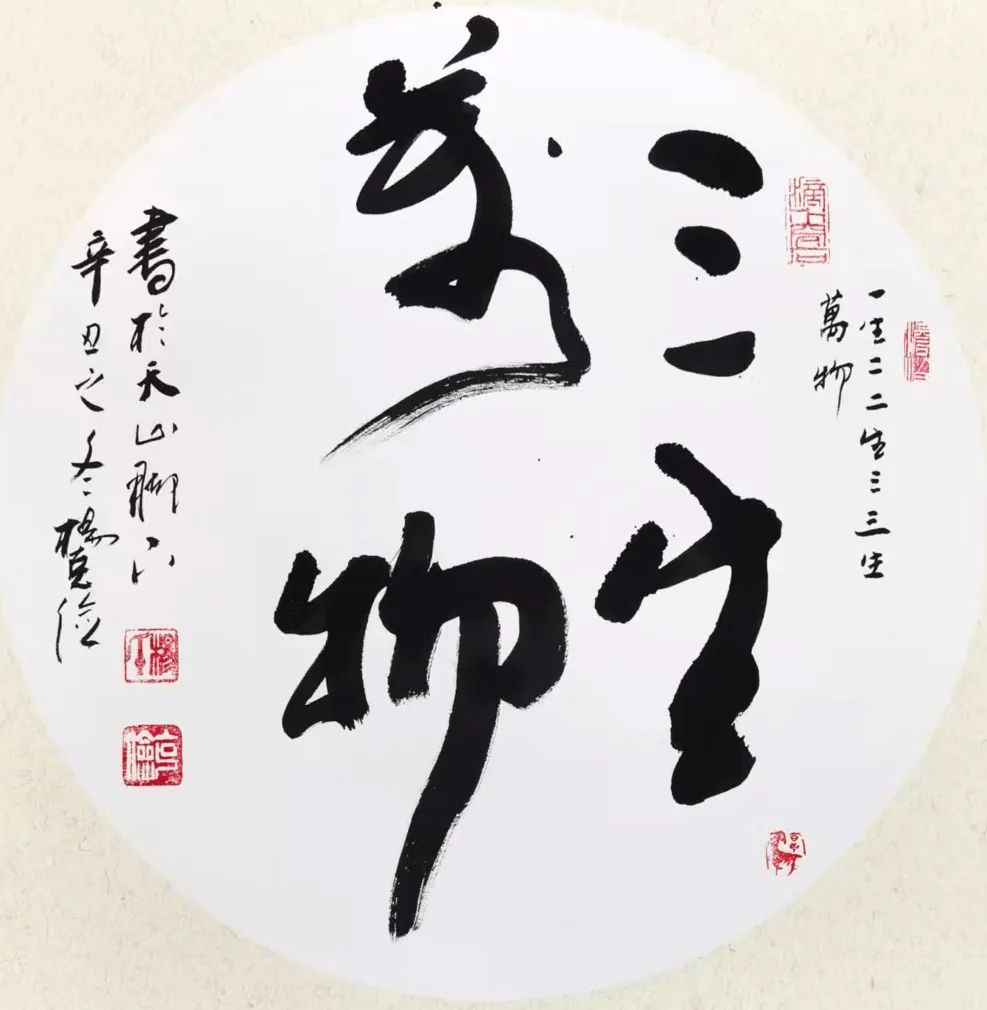 滴水穿石
一生二二生三三生
萬物
三生
萬物
書於天山腳下
辛丑之冬楊克儉